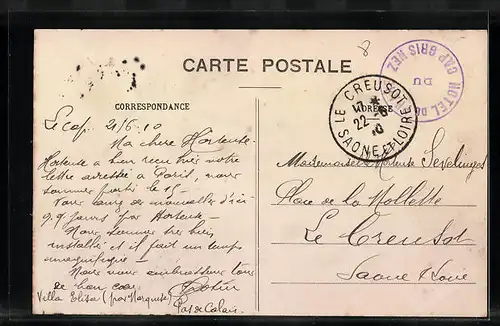 8
CARTE POSTALE
HOTEL DU CAP GRIS NEZ
DU
CORRESPONDANCE
ADRESSE
LE CREUSOT
22 -6
10
SAONE-ET-LOIRE
Le Cap. 21/6.10
Ma chère Hortense
Hortense a bien reçu hier votre
lettre adressée à Paris, nous
sommes partis le 15 -
Vous aurez des nouvelles d'ici
q.q. jours par Hortense -
Nous sommes très bien
installés et il fait un temps
magnifique -
Nous vous embrassons tous
de bon cœur
Villa Elisa (par Marquise)
Pas de Calais
Mademoiselle Hortense Sevelinges
Place de la Mollette
Le Creusot
Saone Loire